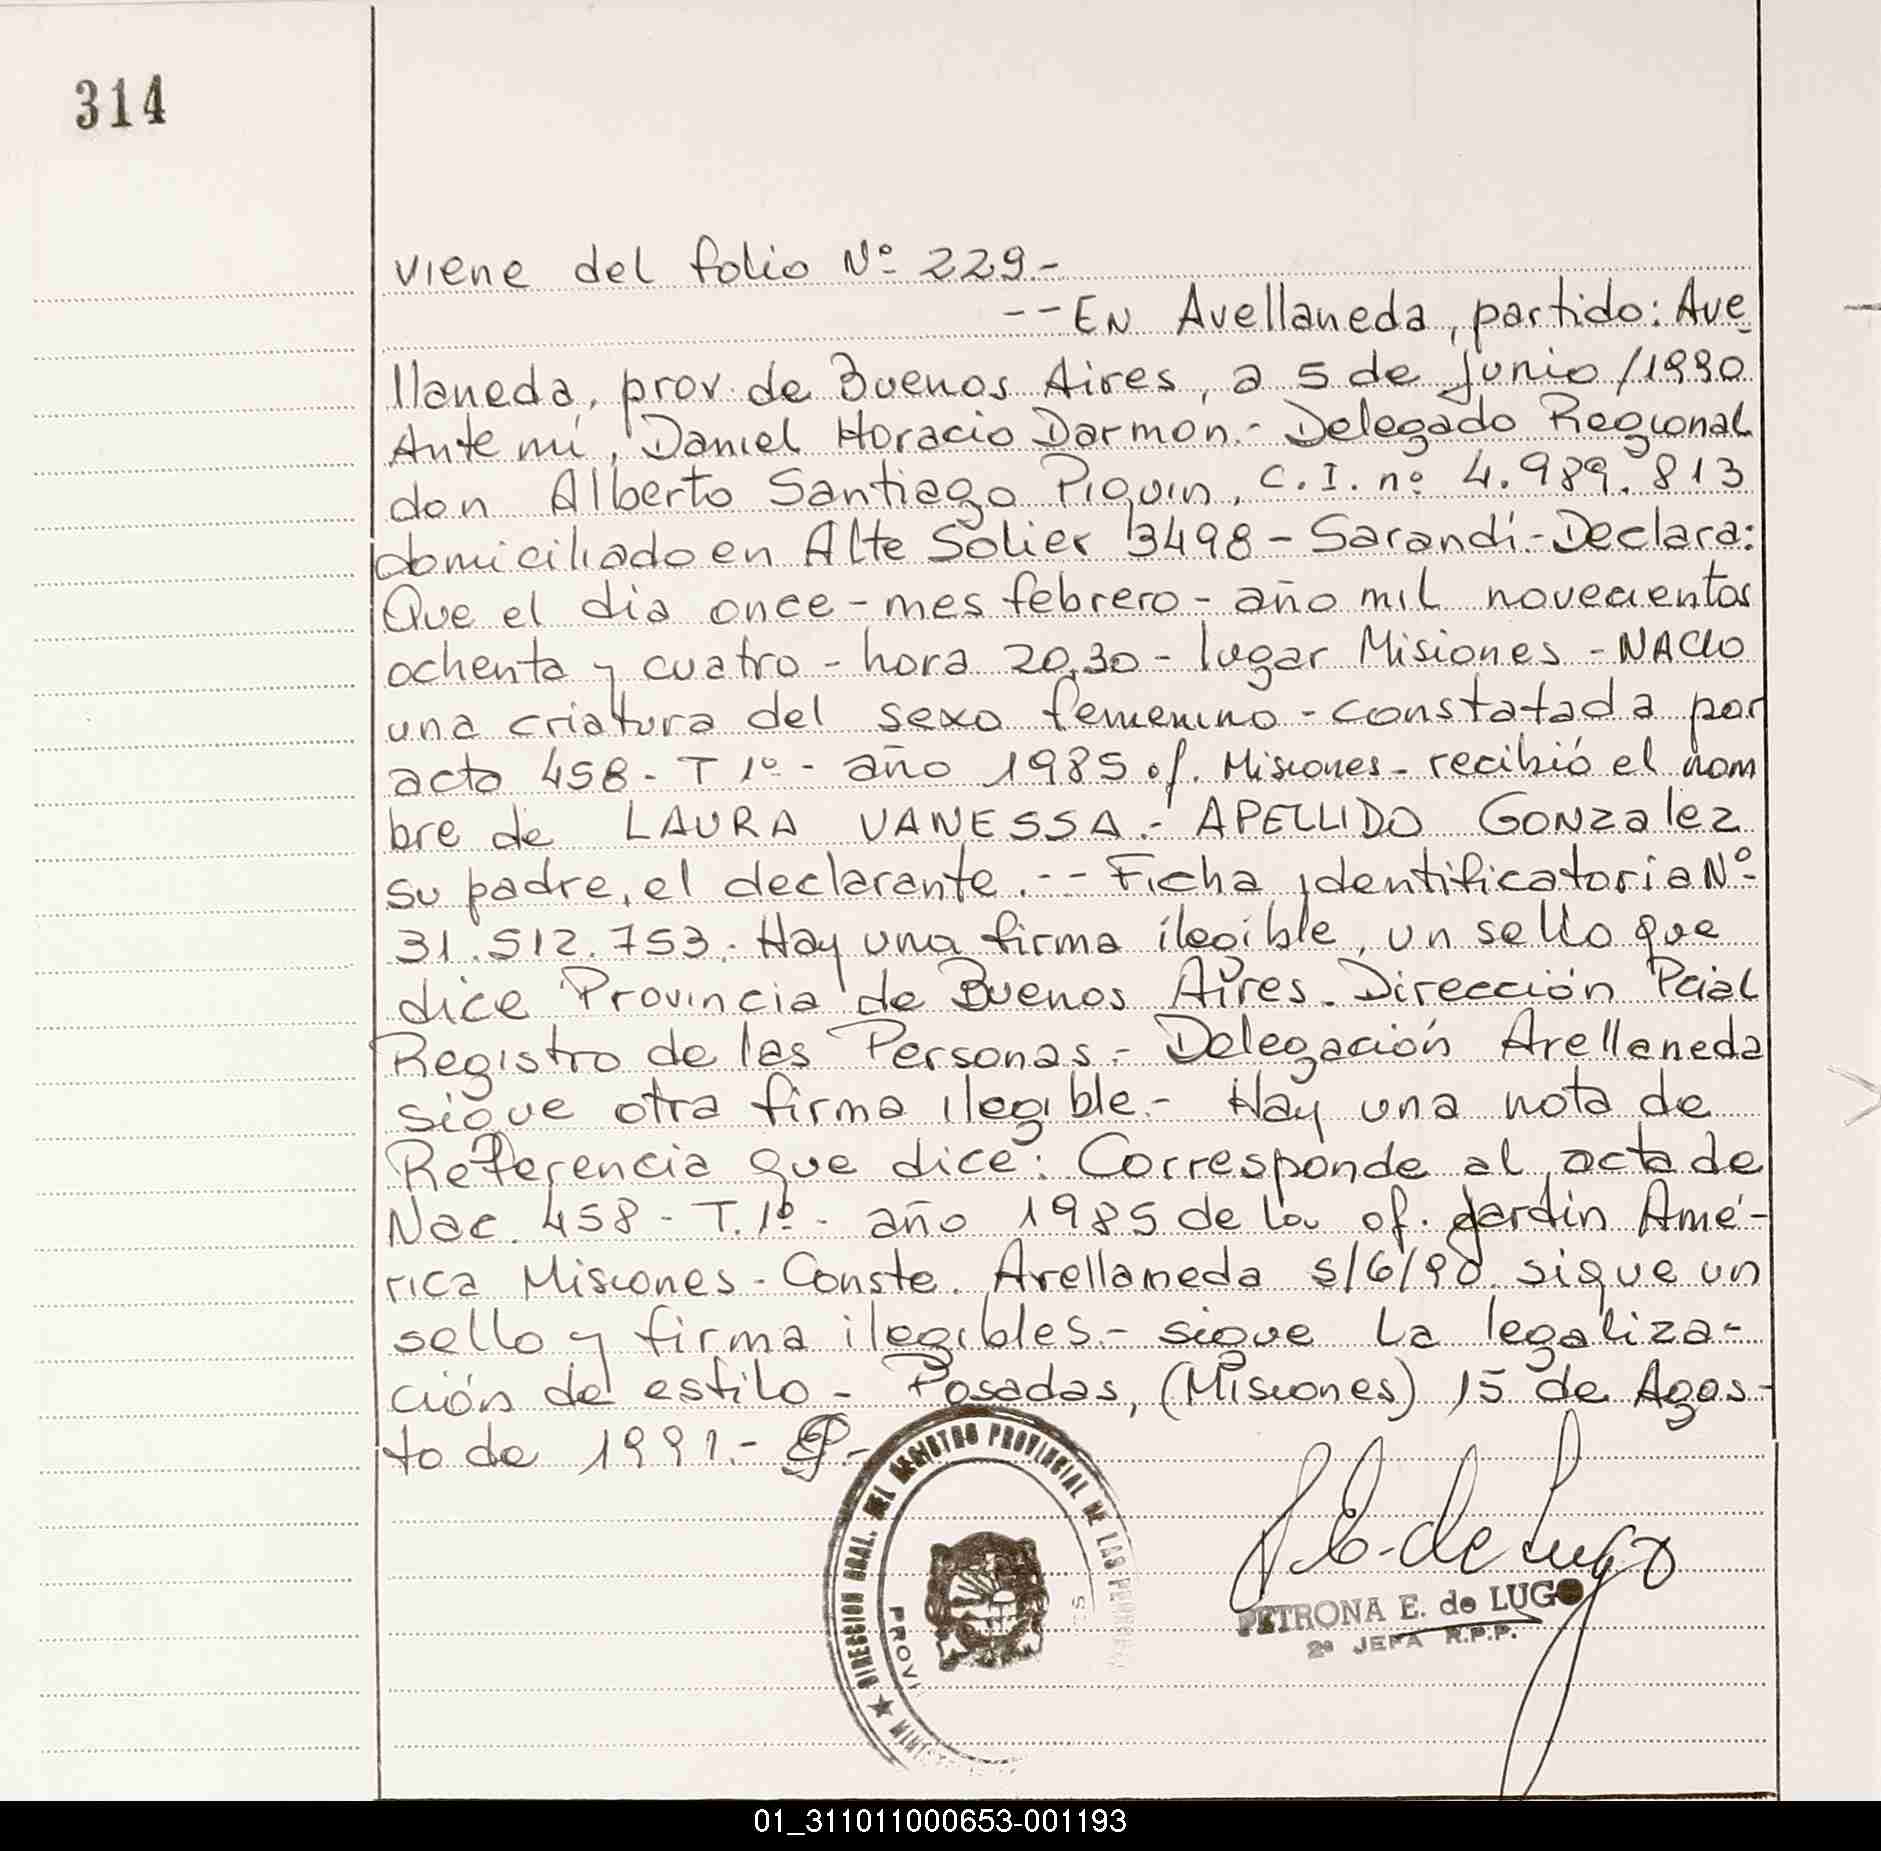 314
viene del folio Nº 229.-
-- EN Avellaneda, partido: Ave
llaneda, prov. de Buenos Aires, a 5 de junio/1990
Ante mí, Daniel Horacio Darmón.- Delegado Regional
don Alberto Santiago Piquin, C.I. nº 4.989.813
domiciliado en Alte Solier 3498 - Sarandí.- Declara:
Que el dia once - mes febrero - año mil novecientos
ochenta y cuatro - hora 20,30 - lugar Misiones - NACIO
una criatura del sexo femenino - constatada por
acta 458 - T 1º - año 1985 of. Misiones - recibió el nom
bre de LAURA VANESSA.- APELLIDO GONzalez
su padre, el declarante.-- Ficha identificatoria Nº
31.512.753.- Hay una firma ilegible, un sello que
dice Provincia de Buenos Aires. Dirección Pcial
Registro de las Personas.- Delegación Avellaneda
sigue otra firma ilegible.- Hay una nota de
Referencia que dice: Corresponde al acta de
Nac. 458 - T. 1º - año 1985 de la of. Jardin Amé-
rica Misiones - Conste. Avellaneda 5/6/90. sigue un
sello y firma ilegibles.- sigue la legaliza-
ción de estilo - Posadas, (Misiones) 15 de Agos-
to de 1991.-
DIRECCION GRAL. DEL REGISTRO PROVINCIAL DE LAS
PROVI
P. E. de Lugo
PETRONA E. de LUGO
2ª JEFA R.P.P.
01_311011000653-001193